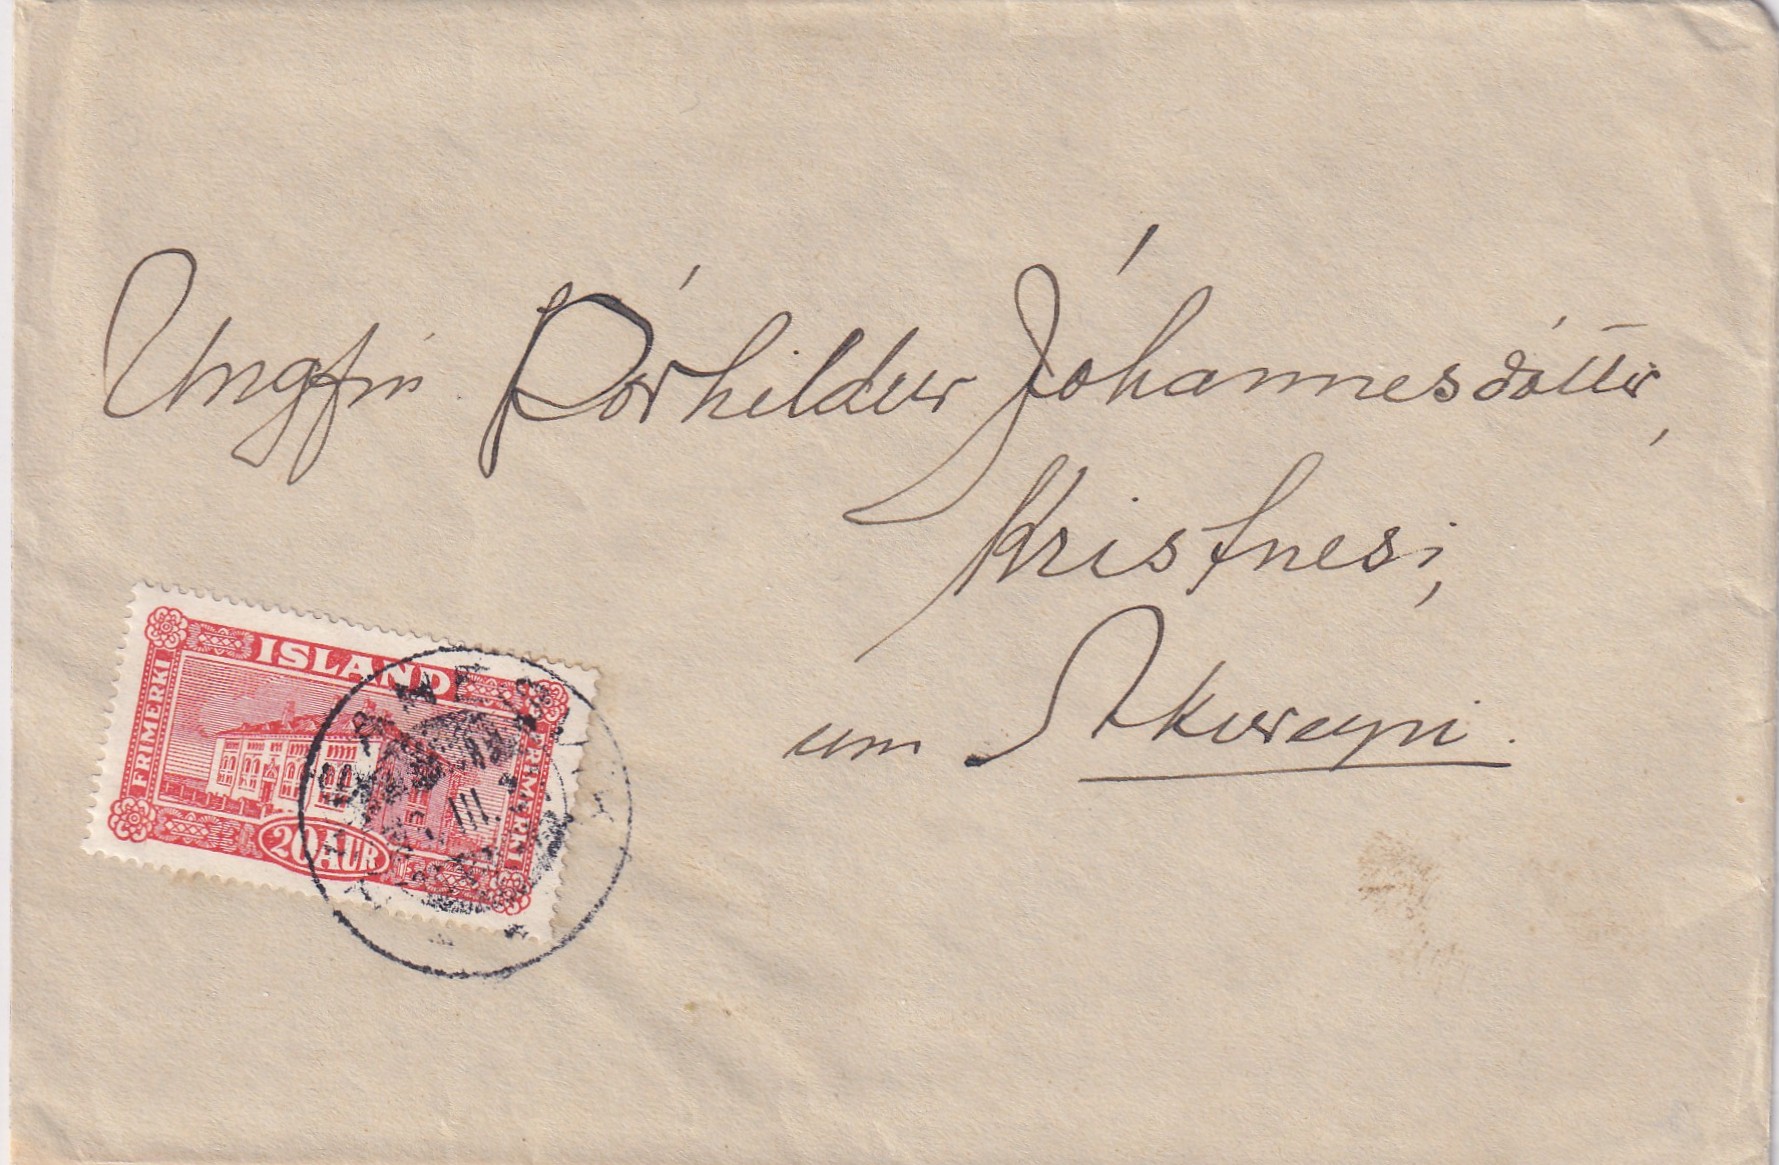 Ungfrú Þórhildur Jóhannesdóttir,
Kristnesi,
um Akureyri.
ISLAND
FRIMERKI
FRIMERKI
20 AUR
III.